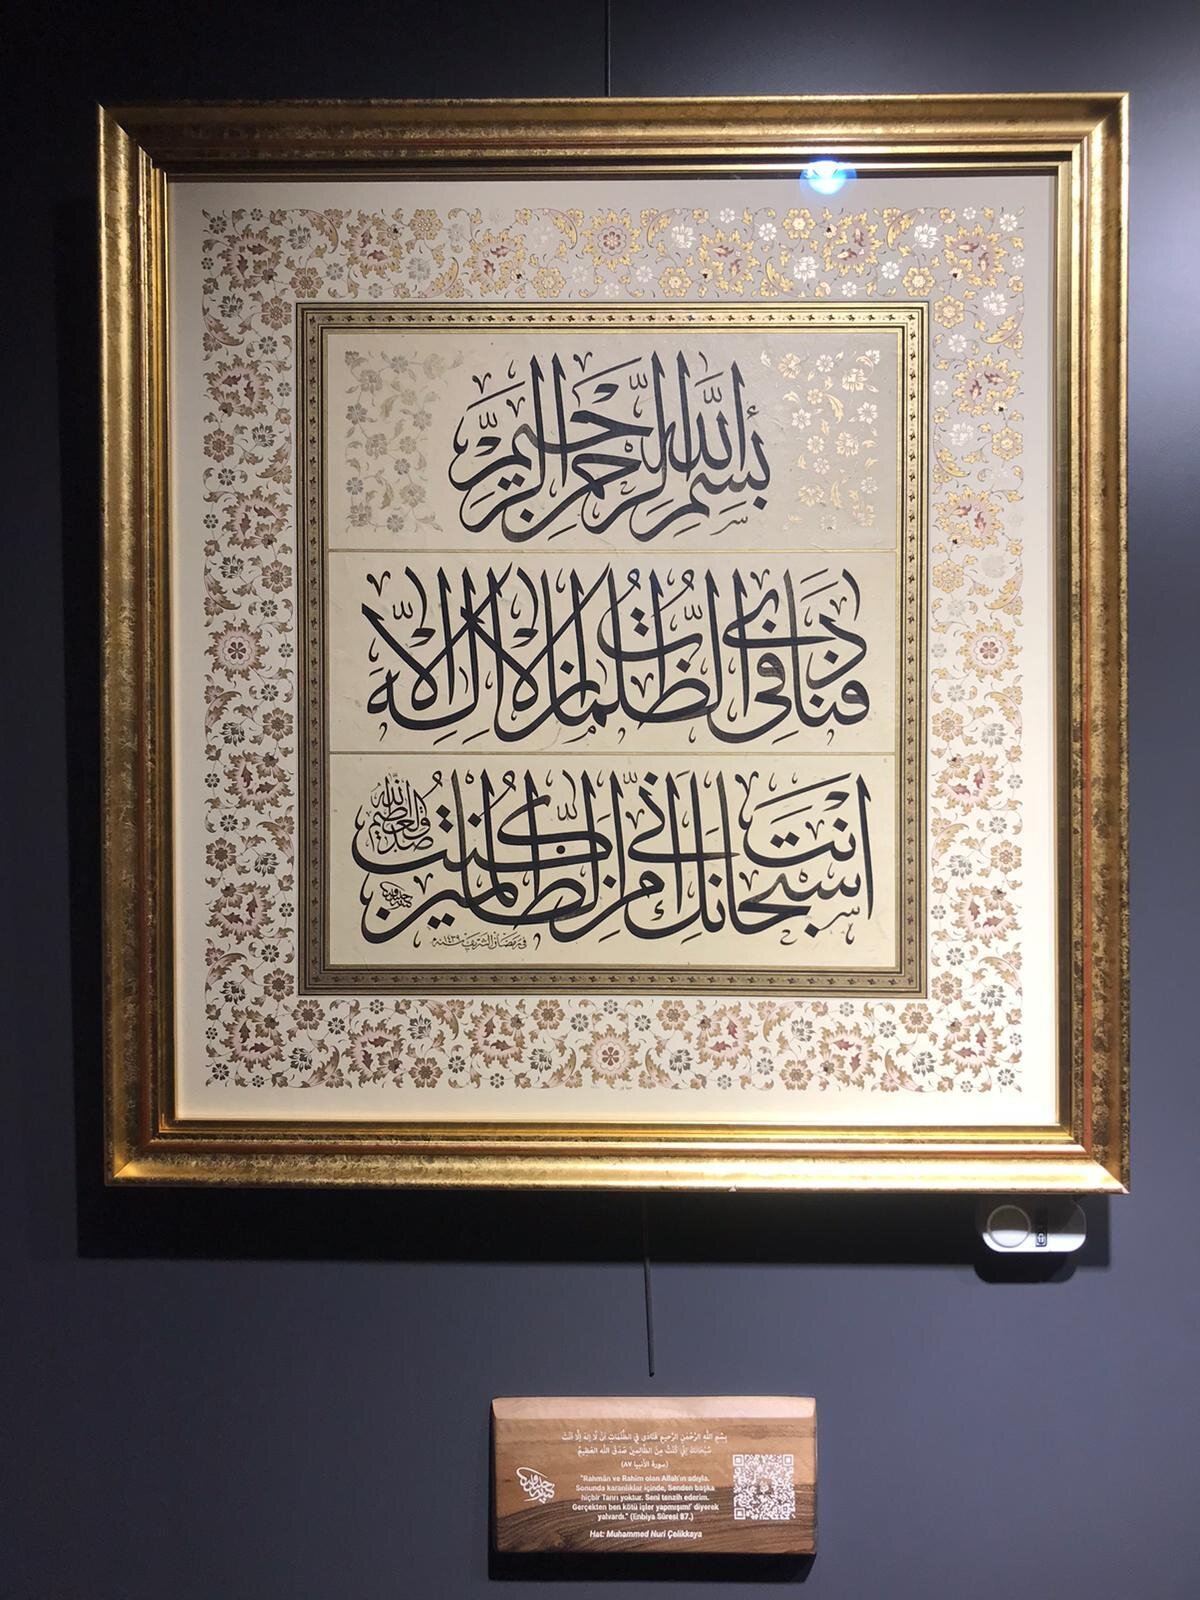 بسم الله الرحمن الرحيم
فنادى في الظلمات ان لا اله الا
انت سبحانك اني كنت من الظالمين
صدق الله العظيم
في رمضان الشريف سنة ١٤٣٩
بِسْمِ اللهِ الرَّحْمَنِ الرَّحِيمِ فَنَادَى فِي الظُّلُمَاتِ أَنْ لَا إِلَهَ إِلَّا أَنْتَ
سُبْحَانَكَ إِنِّي كُنْتُ مِنَ الظَّالِمِينَ صَدَقَ اللهُ العَظِيمُ
(سورة الأنبيا ٨٧)
"Rahmân ve Rahîm olan Allah'ın adıyla.
Sonunda karanlıklar içinde, Senden başka
hiçbir Tanrı yoktur. Seni tenzih ederim.
Gerçekten ben kötü işler yapmışım!' diyerek
yalvardı." (Enbiya Sûresi 87.)
Hat: Muhammed Nuri Çelikkaya